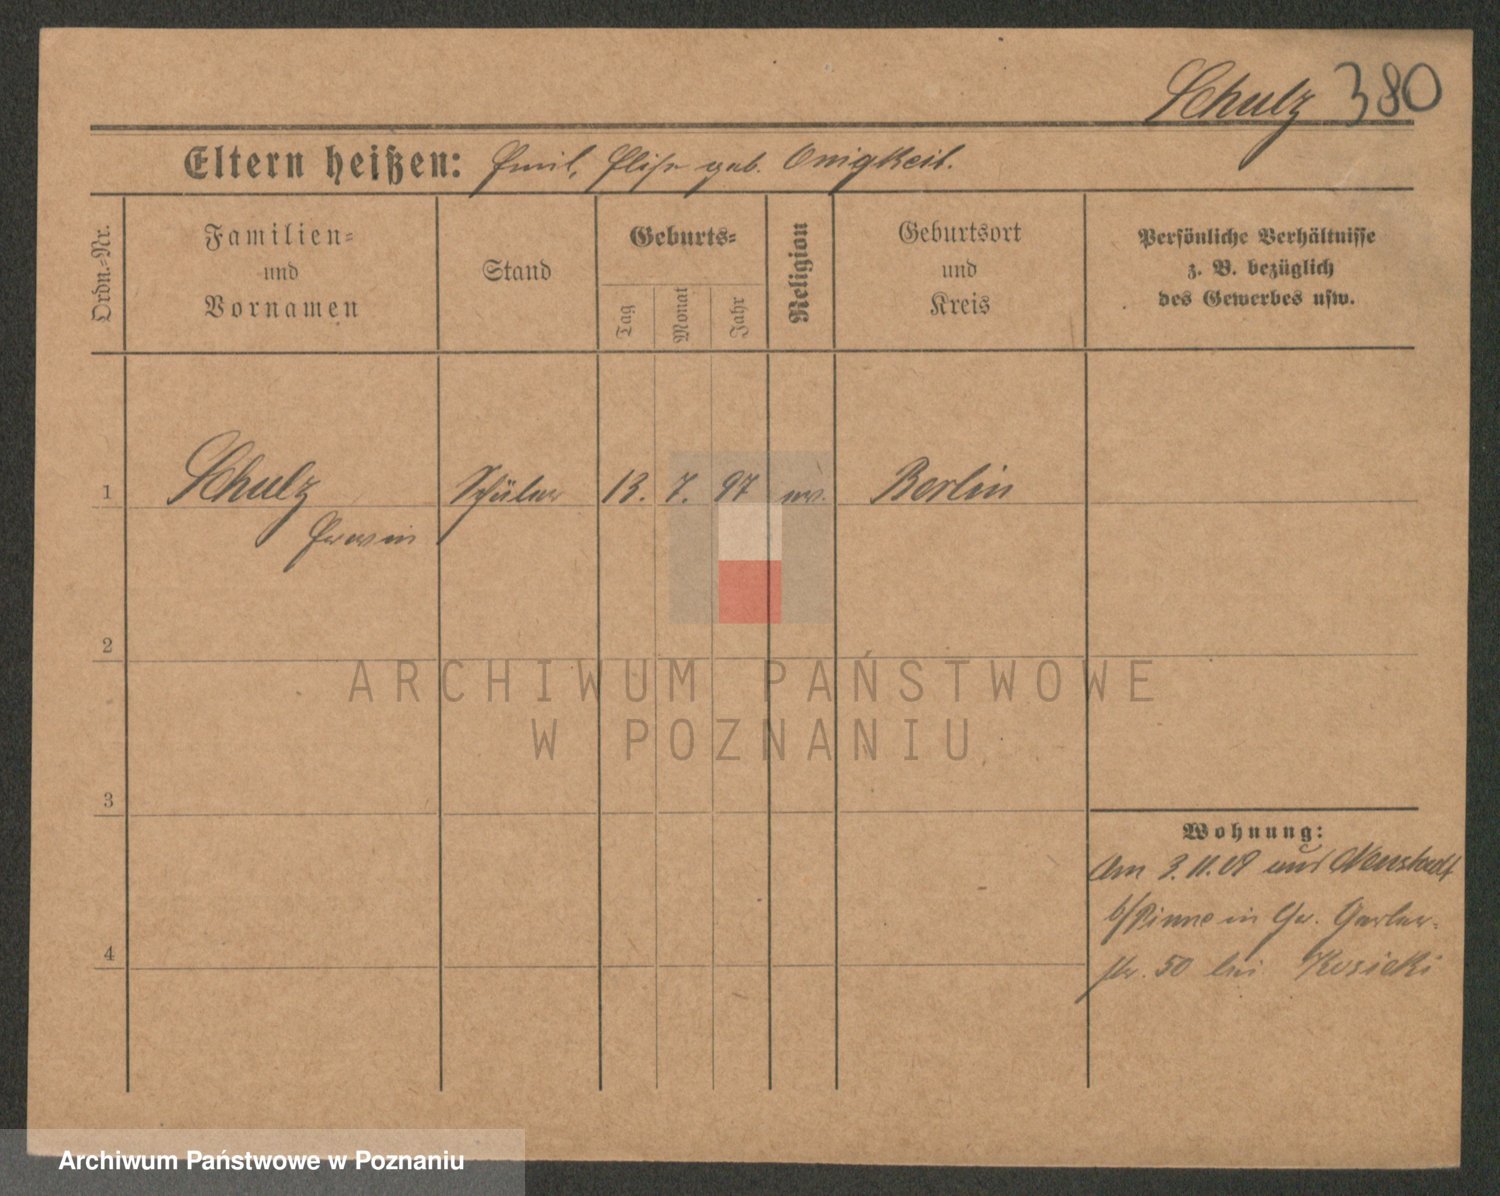 Schulz 380
Eltern heißen: Emil, Elise geb. Onigkeit.
Ordn.-Nr.
Familien-
und
Vornamen
Stand
Geburts-
Tag
Monat
Jahr
Religion
Geburtsort
und
Kreis
Persönliche Verhältnisse
z. B. bezüglich
des Gewerbes usw.
1 Schulz Schüler 13. 7. 97 ev. Berlin
Erwin
2
ARCHIWUM PAŃSTWOWE
W POZNANIU
3
Wohnung:
Am 3.11.09 aus Neustadt
b/Pinne in Gr. Gerber-
4
str. 50 bei Kosicki
Archiwum Państwowe w Poznaniu